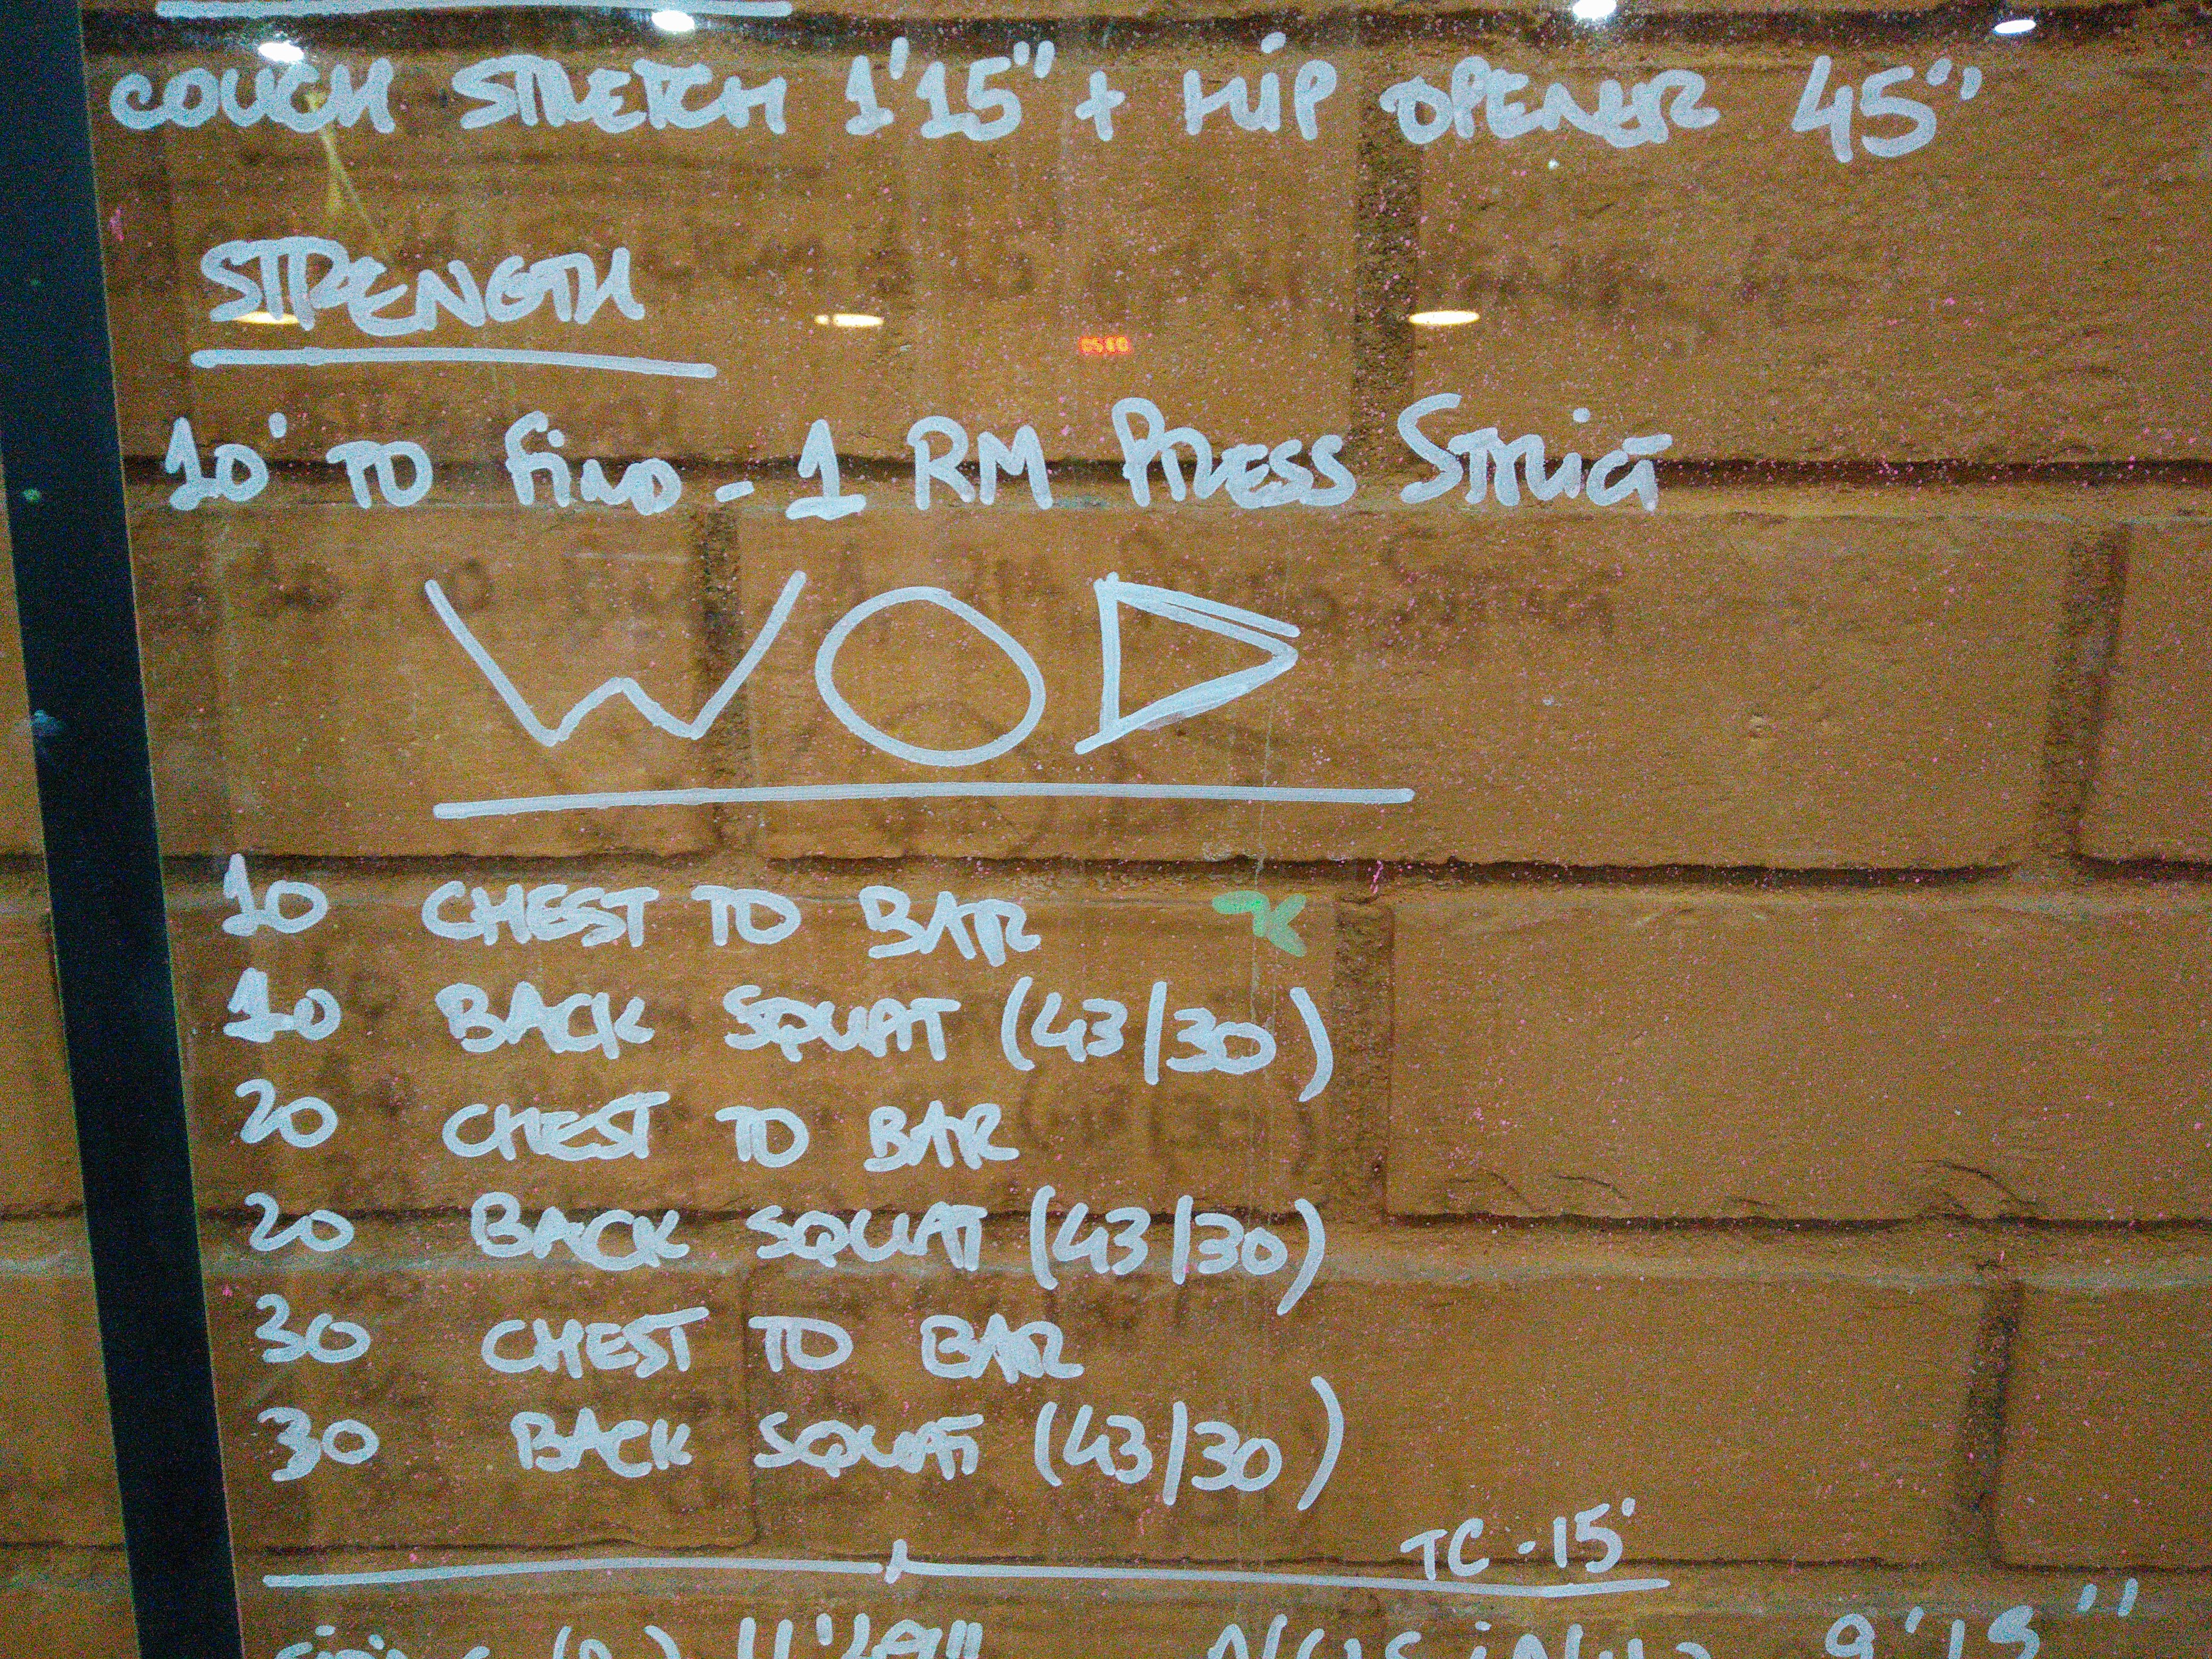 COUCH STRETCH 1'15" + HIP OPENER 45"
STRENGTH
10' TO FIND - 1 RM PRESS STRICT
WOD
10 CHEST TO BAR
10 BACK SQUAT (43/30)
20 CHEST TO BAR
20 BACK SQUAT (43/30)
30 CHEST TO BAR
30 BACK SQUAT (43/30)
TC - 15'